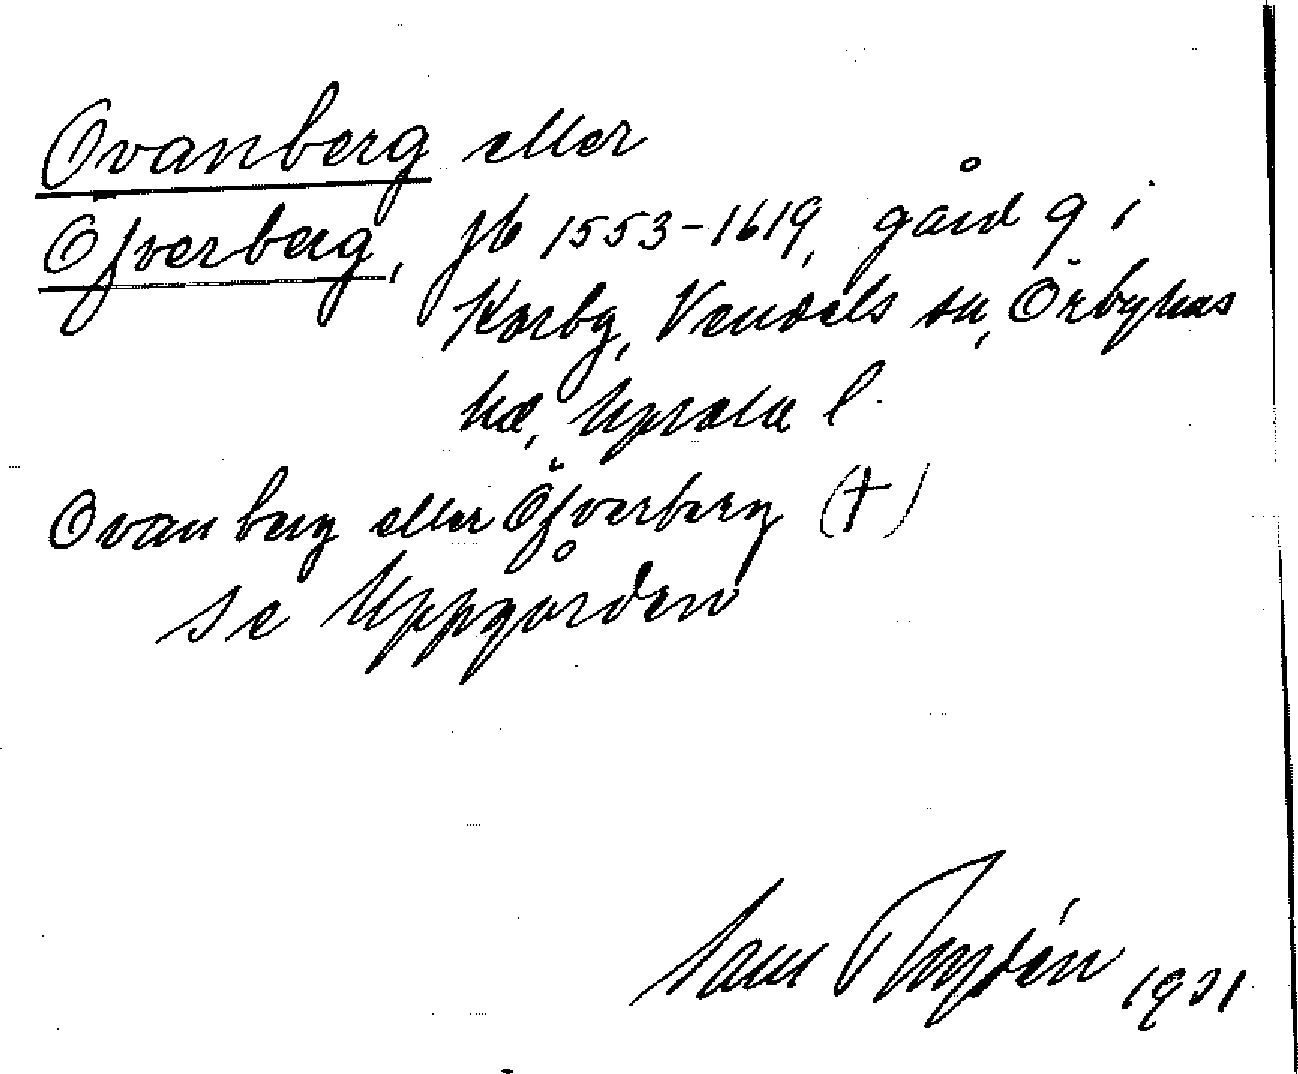 Ovanberg eller
Öfverberg, jb 1553-1619, gård 9 i
Karby, Vendels sn, Örbyhus
hd, Upsala l.
Ovanberg eller Öfverberg (†)
se Uppgården
1931